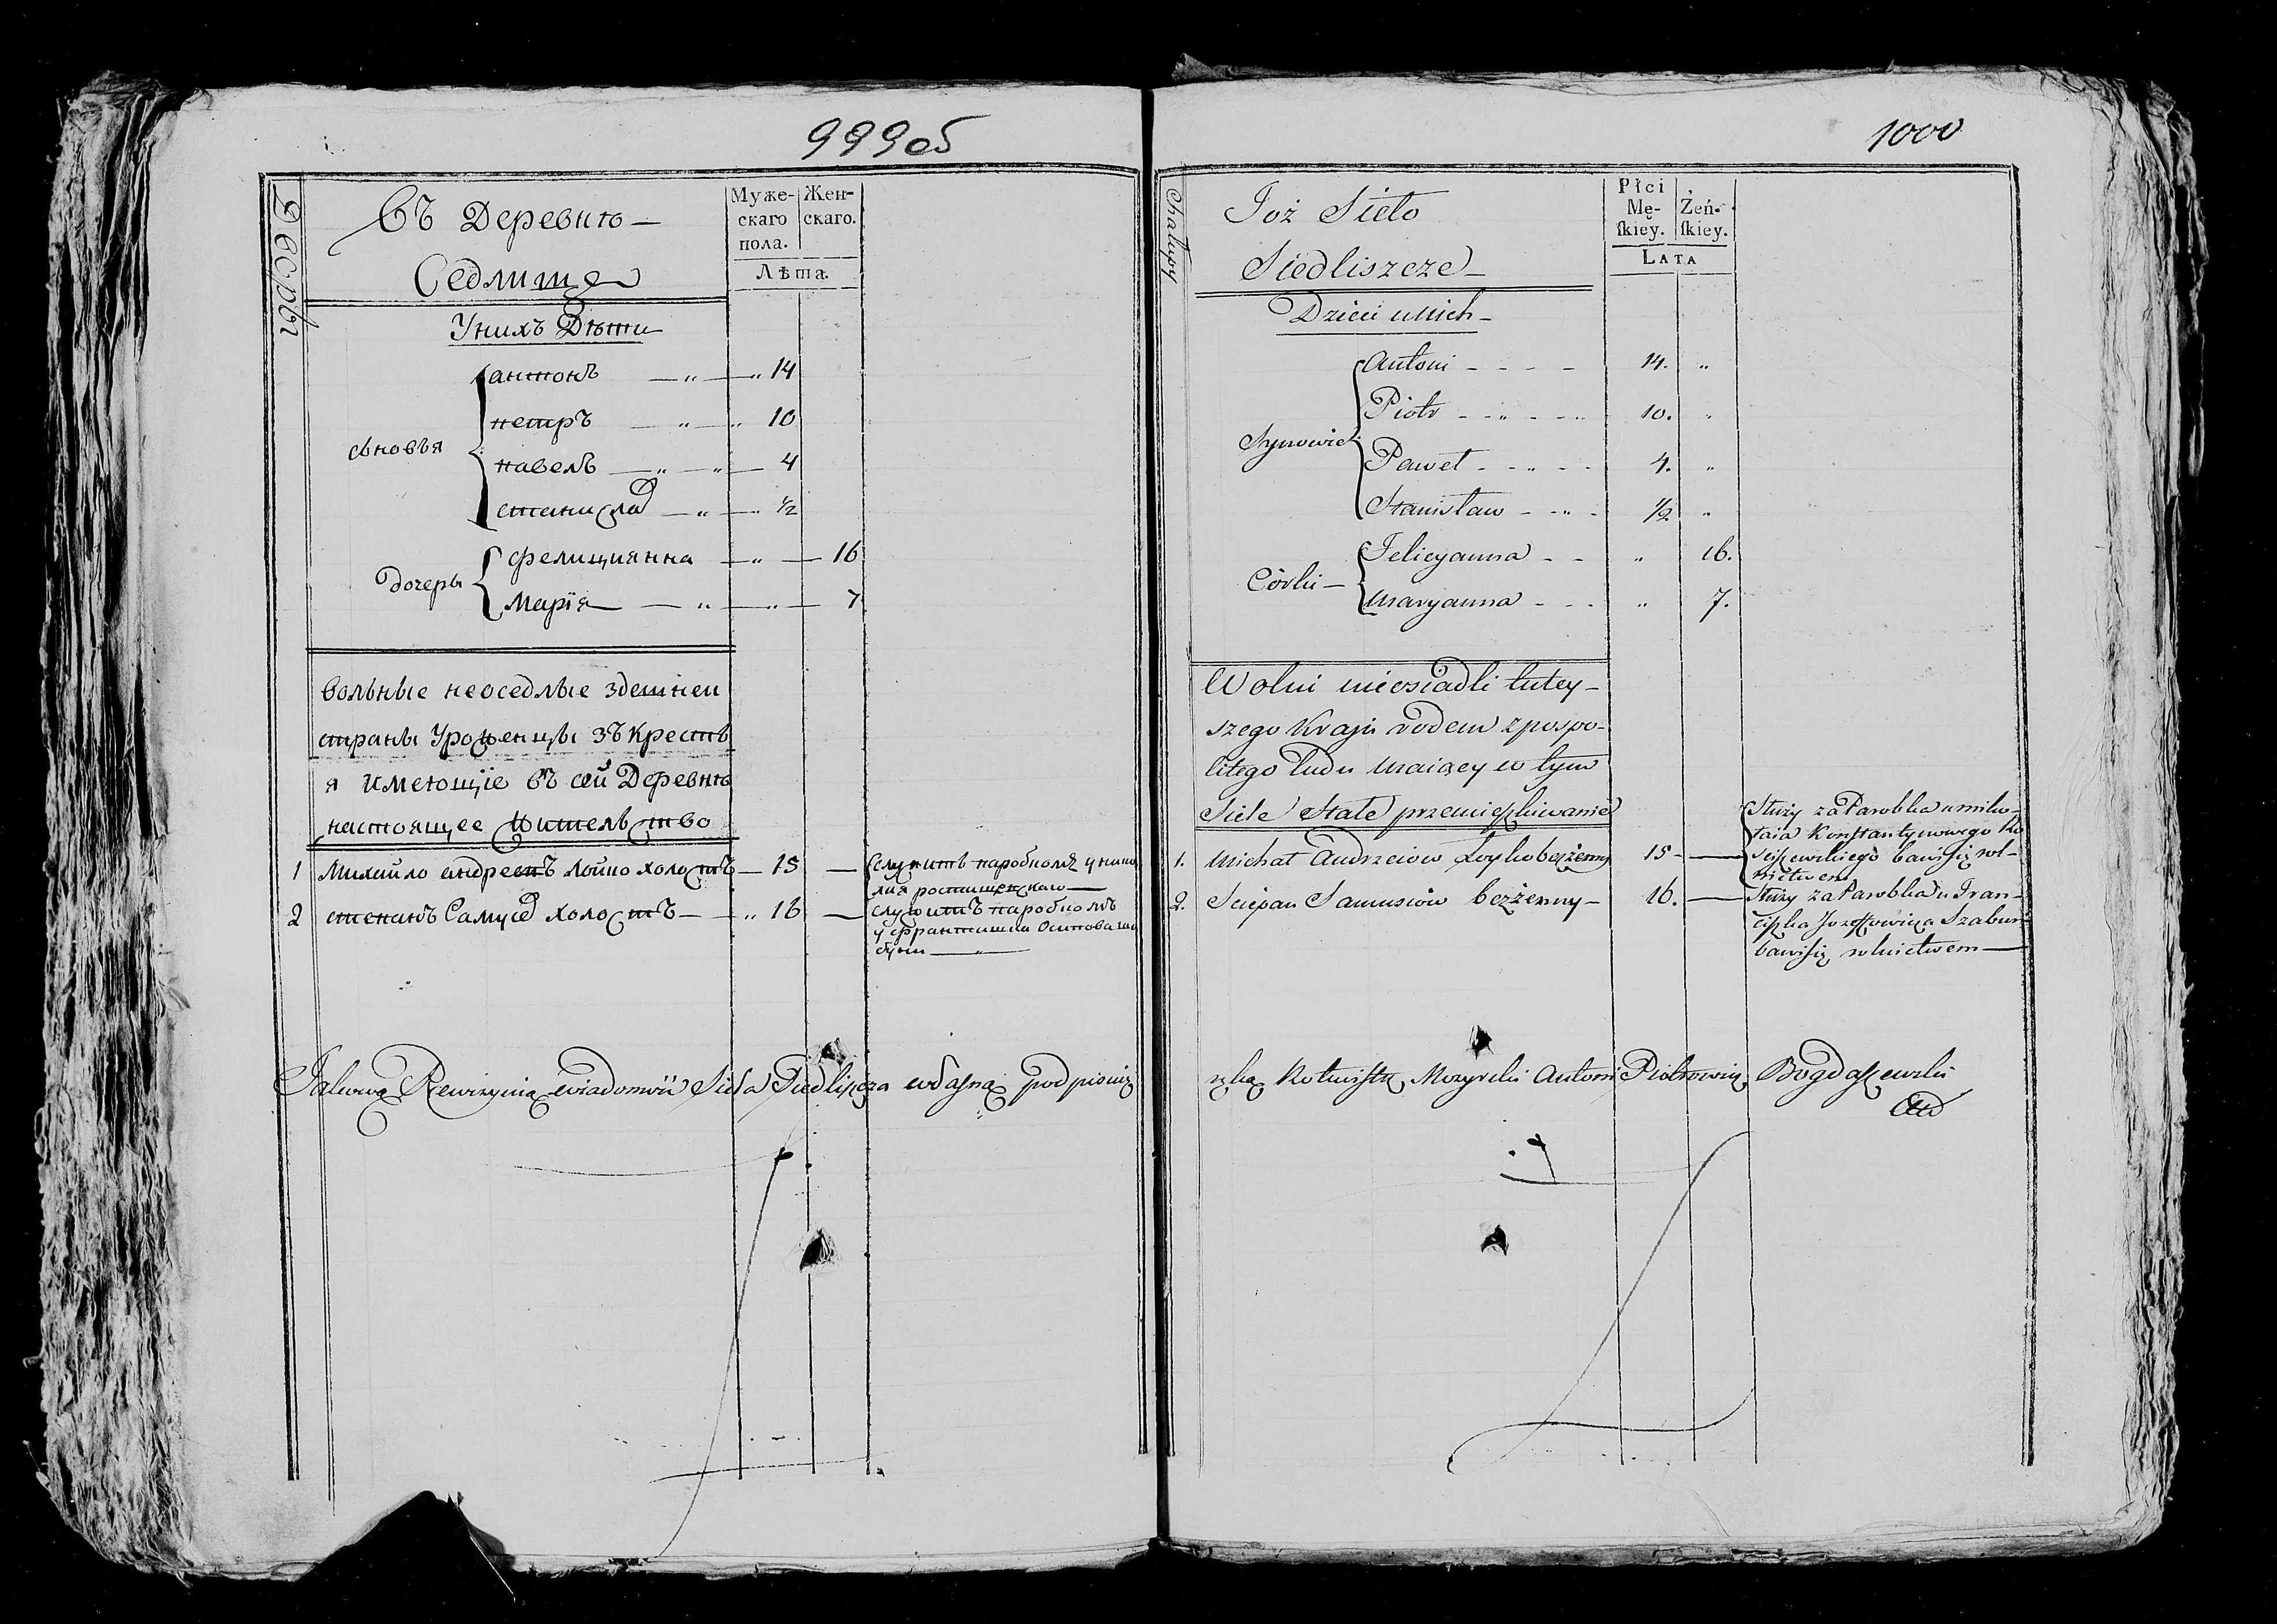 999об
Дворы
Въ Деревню
Седлище
Муже-
скаго
пола.
Жен-
скаго.
Лѣта.
У нихъ Дѣти
антонъ 14
петръ 10
сыновья
павелъ 4
станислав ½
фелициянна 16
дочеры
Марїя 7
вольные неоседлые здешней
страны Уроженцы зъ Крестъ
я имеющїе въ сей Деревнѣ
настоящее жительство
1 Михайло андреевъ лойко холостъ 15
служитъ паробкомъ у нико
лая
2 степанъ Самусев холостъ 16
служитъ паробкомъ
у францишка Осипова ша
буни
Jakową Rewizyię wiadomości Sieła Siedliszcza własną podpisuię
1000
Chałupy
Toż Sieło
Siedliszcze
Płci
Mę-
skiey.
Żeń-
skiey.
LATA
Dzieci u nich
Antoni 14.
Piotr 10.
Synowie
Paweł 4.
Stanisław ½
Felicyanna 16.
Córki
Maryanna 7.
Wolni nieosiadli tutey-
szego Kraju rodem z pospo-
litego ludu maiący w tym
Siele Stałe przemieszkiwanie
1. Michał Andrzeiow Łoyko bezżenny 15
Służy za Parobka u Miko-
łaia Konstantynowego Ro
ściszewskiego bawi się rol-
nictwem
2. Sciepan Samusiow bezżenny 16.
Służy za Parobka u Fran-
ciszka Jozefowicza Szabuni
bawi się rolnictwem
ręką Rotmistrz Mozyrski Antoni Piotrowicz Bogdaszewski